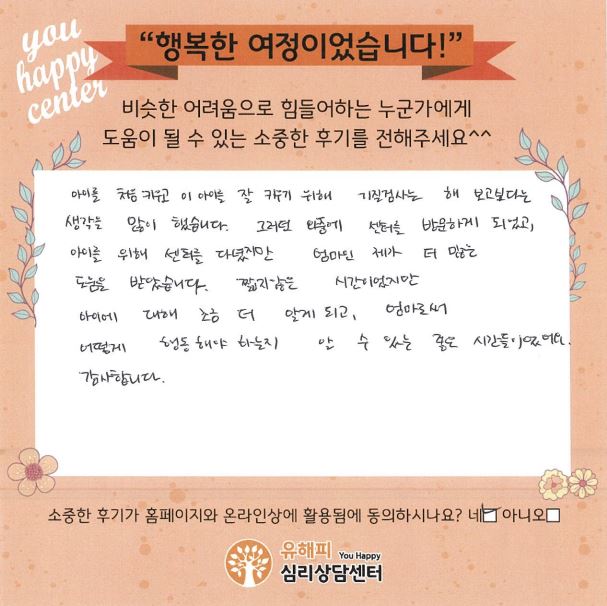 you
happy
center
“행복한 여정이었습니다!”
비슷한 어려움으로 힘들어하는 누군가에게
도움이 될 수 있는 소중한 후기를 전해주세요^^
아이를 처음 키우고 이 아이를 잘 키우기 위해 기질검사는 해 보고싶다는
생각을 많이 했습니다. 그러던 와중에 센터를 방문하게 되었고,
아이를 위해 센터를 다녔지만 엄마인 제가 더 많은
도움을 받았습니다. 짧지않은 시간이었지만
아이에 대해 조금 더 알게 되고, 엄마로써
어떻게 행동해야 하는지 알 수 있는 좋은 시간들이었어요.
감사합니다.
소중한 후기가 홈페이지와 온라인상에 활용됨에 동의하시나요? 네☑ 아니오☐
유해피 You Happy
심리상담센터